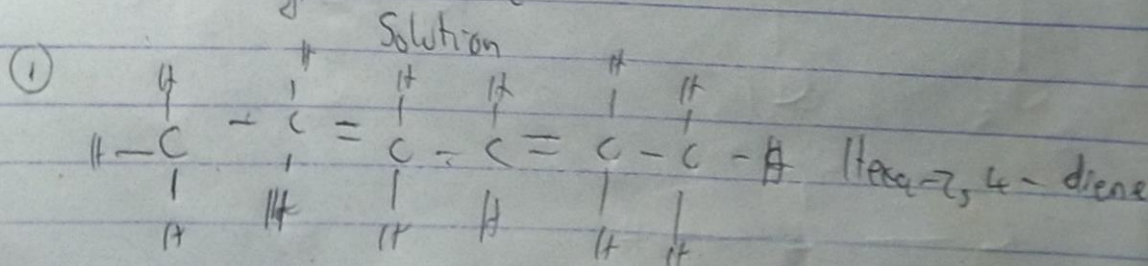 Solution
①
H H H H H H
H-C - C = C - C = C - C - H Hexa-2,4-diene
H H H H H H